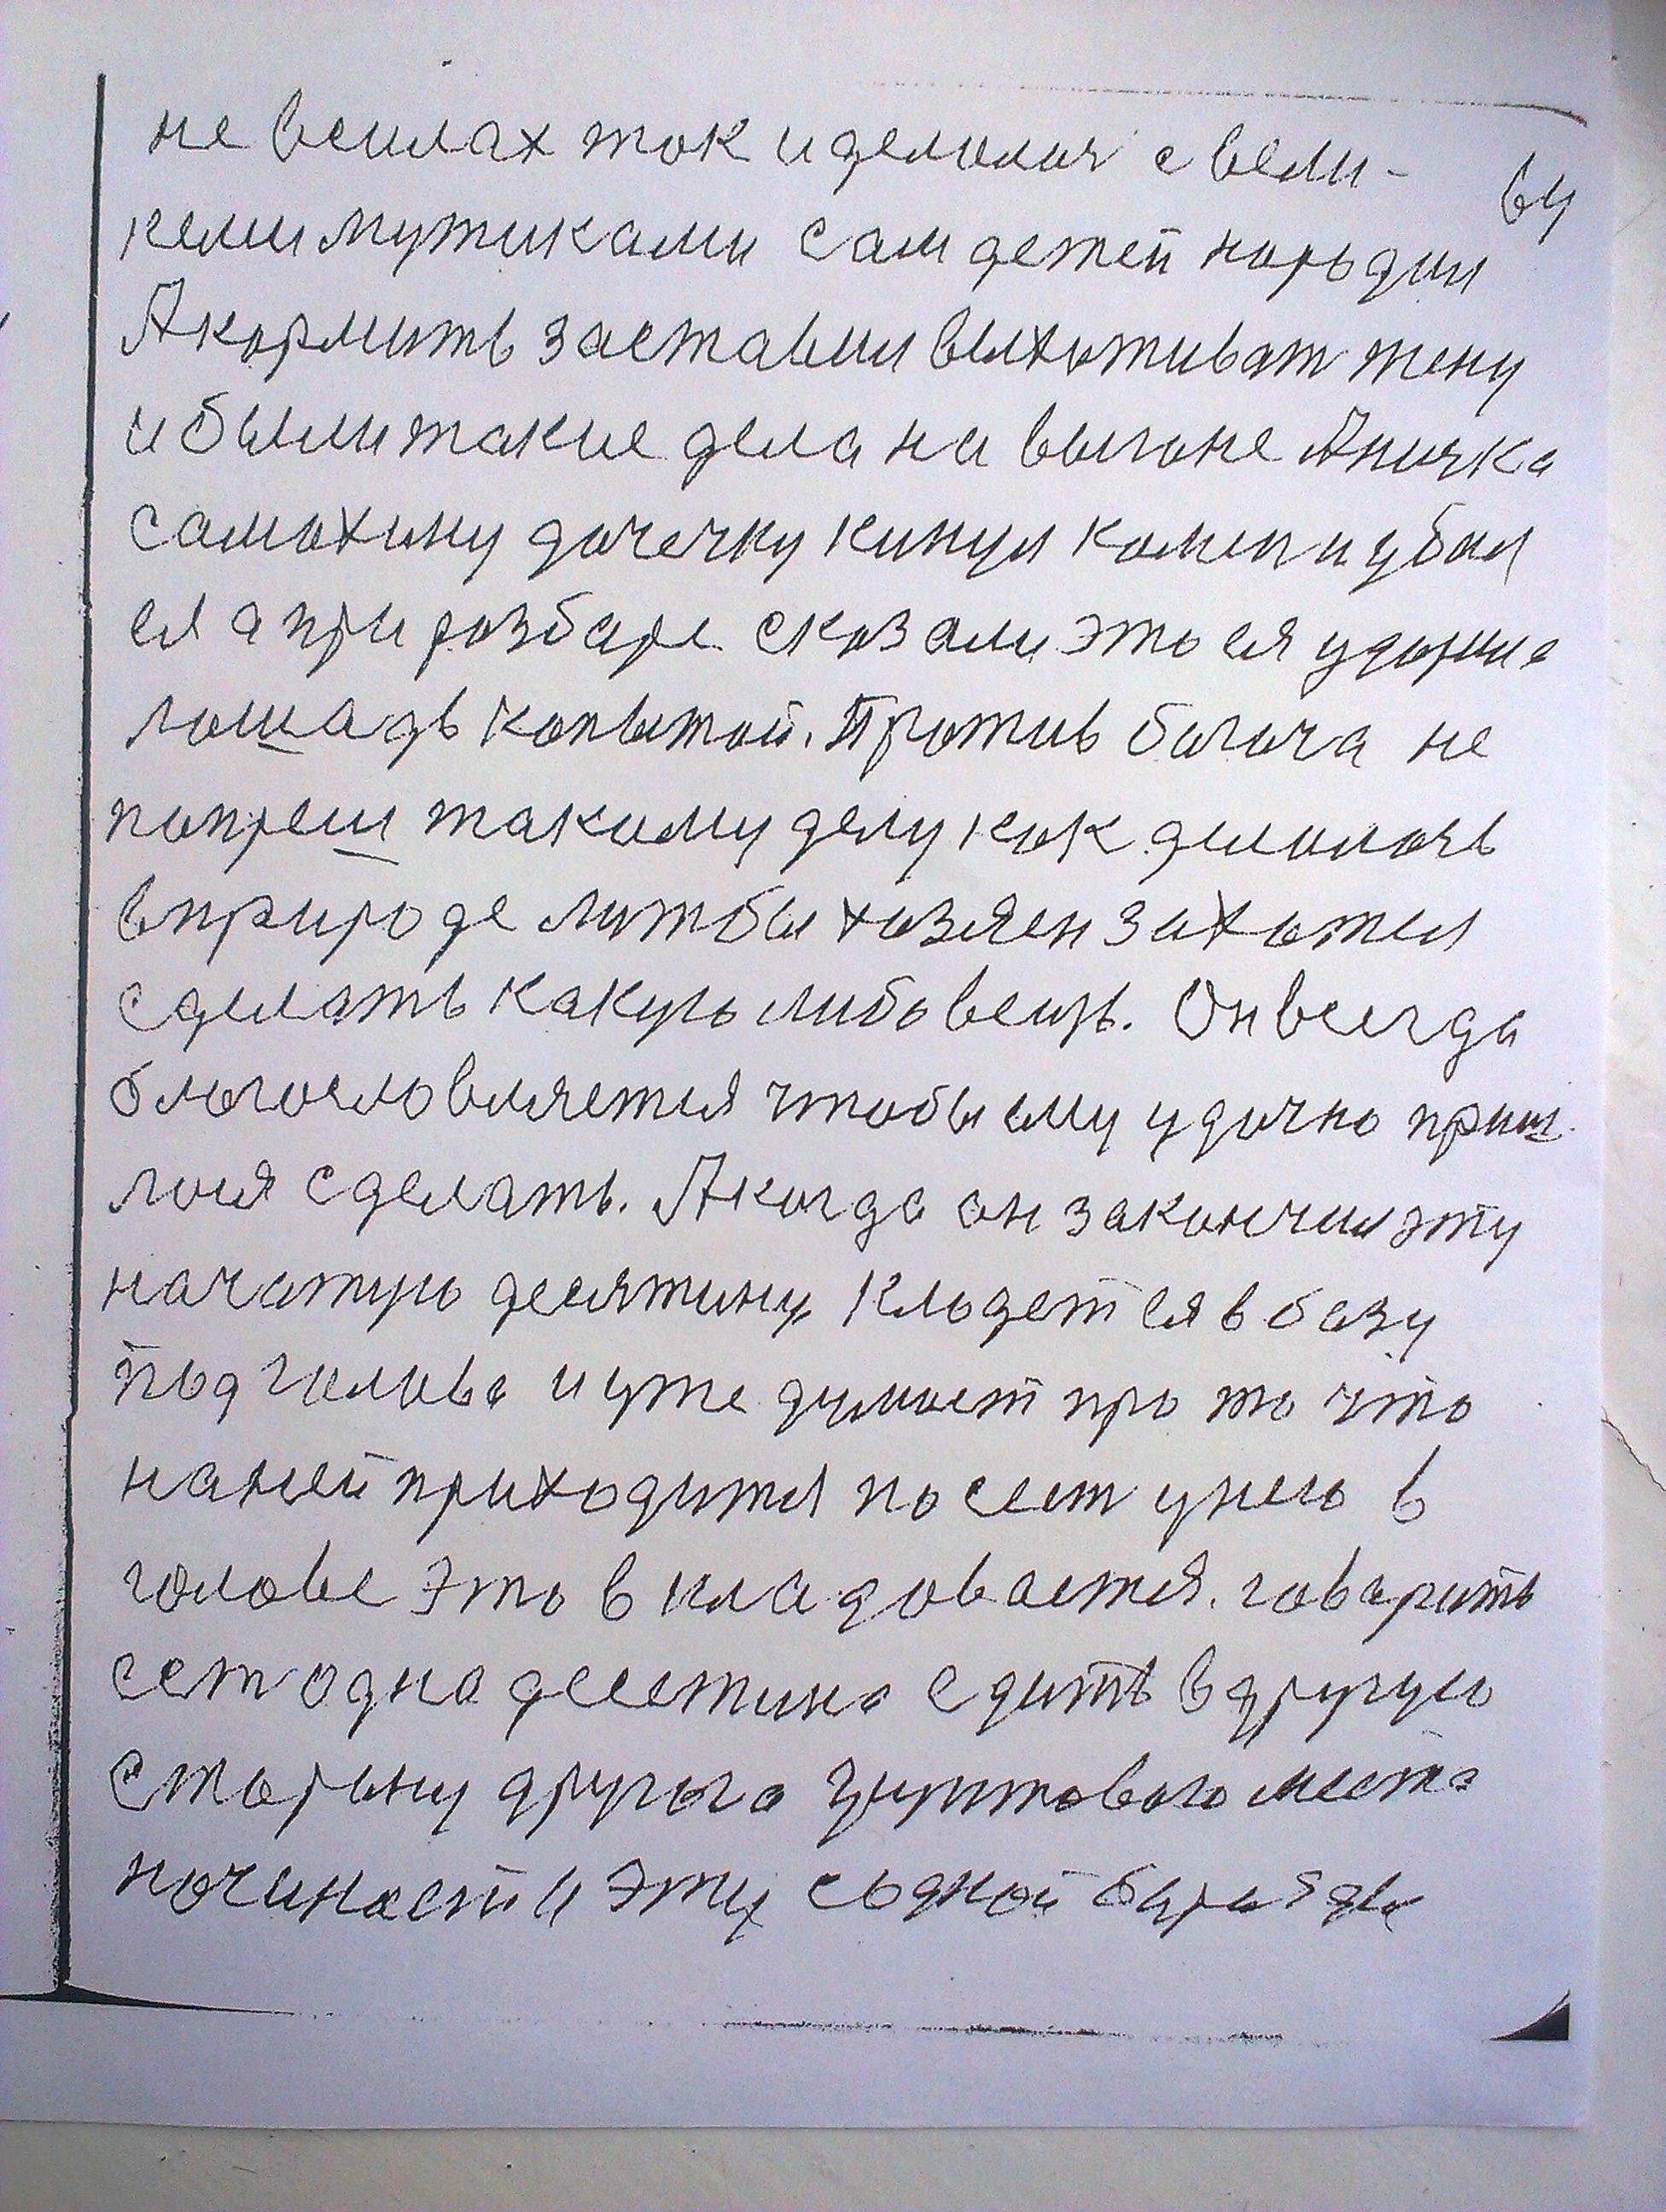 не всилах так и делолоч с вели-
64
кеми мутиками сам детей народил
А кормить заставил выхотиват жену
и были такие дела на выгоне Аничка
самохину дочечку кинул камен и убил
ея а при розборе сказали это ея ударила
лошадь копытой. Против богача не
попреш такому делу как делолочь
вприроде литбы хозяен захотел
сделать какую либо вещь. Он всегда
благословляется чтобы ему удачно приш
лося сделать. А когда он закончил эту
начатую десятину кладется в базу
под голова и уже думает про то что
на ней приходится посеет унего в
голове это вкладовается. говарить
сет одна десетина едить вдругую
сторону другога груптового места
начинает и эту содной борозды